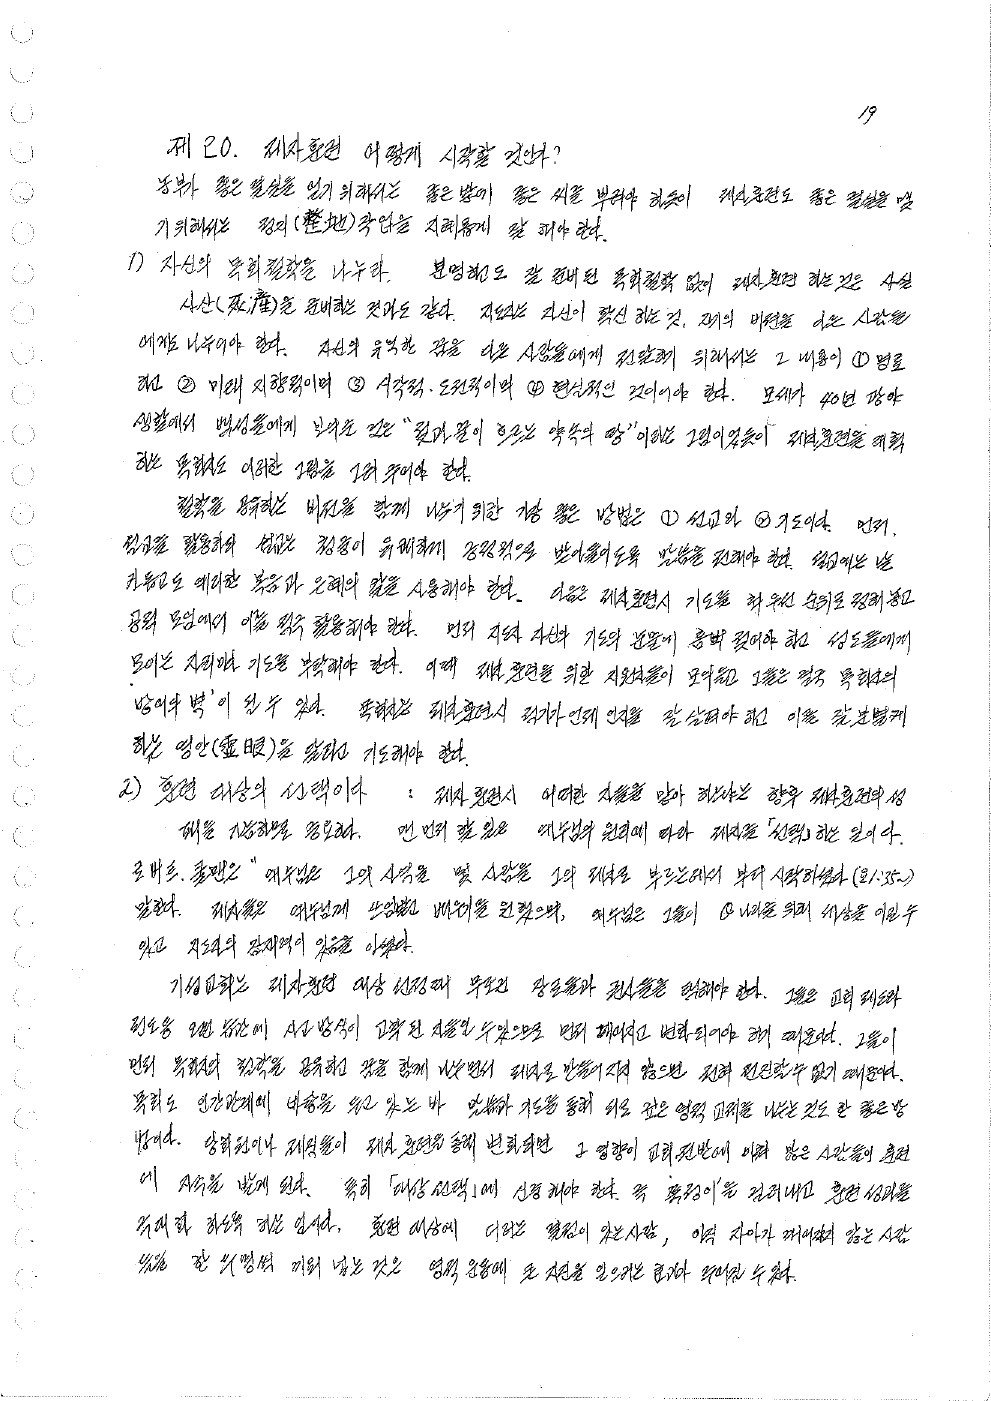 19
제 20. 제자훈련 어떻게 시작할 것인가?
농부가 좋은 결실을 얻기 위해서는 좋은 밭에 좋은 씨를 뿌려야 하듯이 제자훈련도 좋은 결실을 맺
기 위해서는 정지(整地)작업을 지혜롭게 잘 해야 한다.
1) 자신의 목회철학을 나누라. 분명하고도 잘 준비된 목회철학 없이 제자훈련 하는 것은 사실
사산(死産)을 준비하는 것과도 같다. 지도자는 자신이 확신하는 것, 자기의 비전을 다른 사람들
에게도 나누어야 한다. 자신의 유익한 꿈을 다른 사람들에게 전달하기 위해서는 그 내용이 ① 명료
하고 ② 미래 지향적이며 ③ 시각적·도전적이며 ④ 현실적인 것이어야 한다. 모세가 40년 광야
생활에서 백성들에게 보여준 것은 "젖과 꿀이 흐르는 약속의 땅"이라는 그림이었듯이 제자훈련을 계획
하는 목회자도 이러한 그림을 그려 주어야 한다.
철학을 공유하는 비전을 함께 나누기 위한 가장 좋은 방법은 ① 설교와 ② 기도이다. 먼저,
설교를 활용하되 설교는 청중이 유쾌하게 긍정적으로 받아들이도록 말씀을 전해야 한다. 설교에는 날
카롭고도 예리한 복음과 은혜의 칼을 사용해야 한다. 다음은 제자훈련시 기도를 최우선 순위로 정해 놓고
공적 모임에서 이를 적극 활용해야 한다. 먼저 지도자 자신의 기도의 눈물에 흠뻑 젖어야 하고 성도들에게
모이는 자리마다 기도를 부탁해야 한다. 이때 제자훈련을 위한 지원자들이 모여들고 그들은 결국 목회자의
'방어의 벽'이 될 수 있다. 목회자는 제자훈련시 적기가 언제인지를 잘 살펴야 하고 이를 잘 분별케
하는 영안(靈眼)을 달라고 기도해야 한다.
2) 훈련 대상의 선택이다 : 제자훈련시 어떠한 자들을 맡아 하느냐는 향후 제자훈련의 성
패를 가늠하므로 중요하다. 맨 먼저 할 일은 예수님의 원리에 따라 제자를 「선택」하는 일이다.
로버트. 콜맨은 "예수님은 그의 사역을 몇 사람을 그의 제자로 부르는데서 부터 시작하셨다(요1:35~)
말한다. 제자들은 예수님께 쓰임받고 배우기를 원했으며, 예수님은 그들이 하나님을 위해 세상을 이길 수
있고 지도자의 잠재력이 있음을 아셨다.
기성교회는 제자훈련 대상 선정때 무조건 장로들과 권사들을 택해야 한다. 그들은 교회 제도와
전도등 오랜 습관에 사고방식이 고착된 자들일 수 있으므로 먼저 깨어지고 변화되어야 하기 때문이다. 그들이
먼저 목회자와 철학을 공유하고 꿈을 함께 나누면서 제자로 만들어지지 않으면 전혀 전진할 수 없기 때문이다.
목회도 인간관계에 바탕을 두고 있는 바 말씀과 기도를 통해 서로 깊은 영적 교제를 나누는 것도 한 좋은 방
법이다. 당회원이나 제직들이 제자훈련을 통해 변화되면 그 영향이 교회전반에 미쳐 많은 사람들이 훈련
에 자극을 받게 된다. 특히 「대상 선택」에 신중해야 한다. 즉 '쭉정이'을 걸러내고 훈련 성과를
극대화 하도록 하는 일이다. 훈련 대상에 더러는 결점이 있는 사람, 아직 자아가 깨어지지 않는 사람
등을 한 두명씩 끼워 넣는 것은 영적 운동에 큰 지진을 일으키는 효과가 주어질 수 있다.